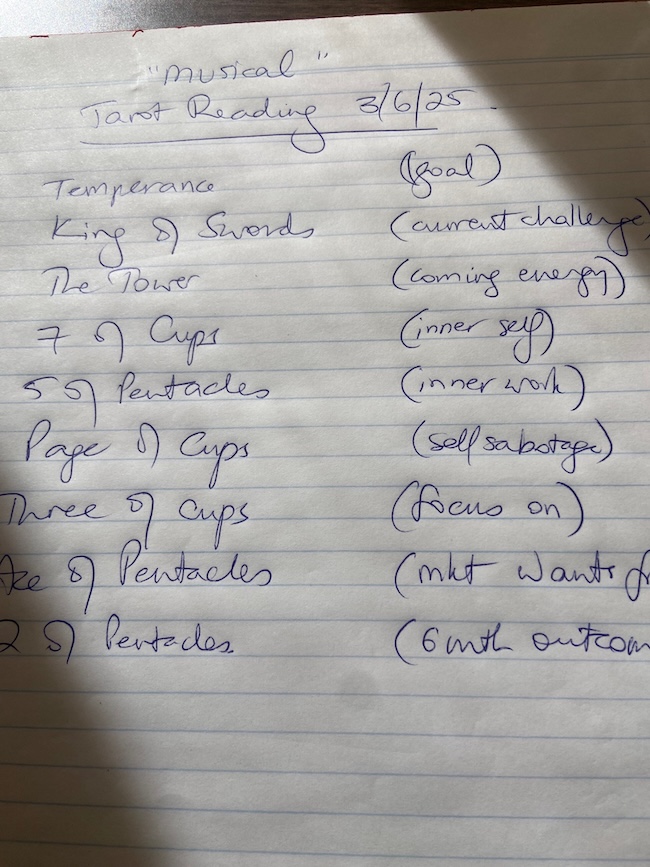 "musical"
Tarot Reading 3/6/25.
Temperance (goal)
King of Swords (current challenge)
The Tower (coming energy)
7 of Cups (inner self)
5 of Pentacles (inner work)
Page of Cups (self sabotage)
Three of Cups (focus on)
Ace of Pentacles (mkt wants
2 of Pentacles (6 mth outcom